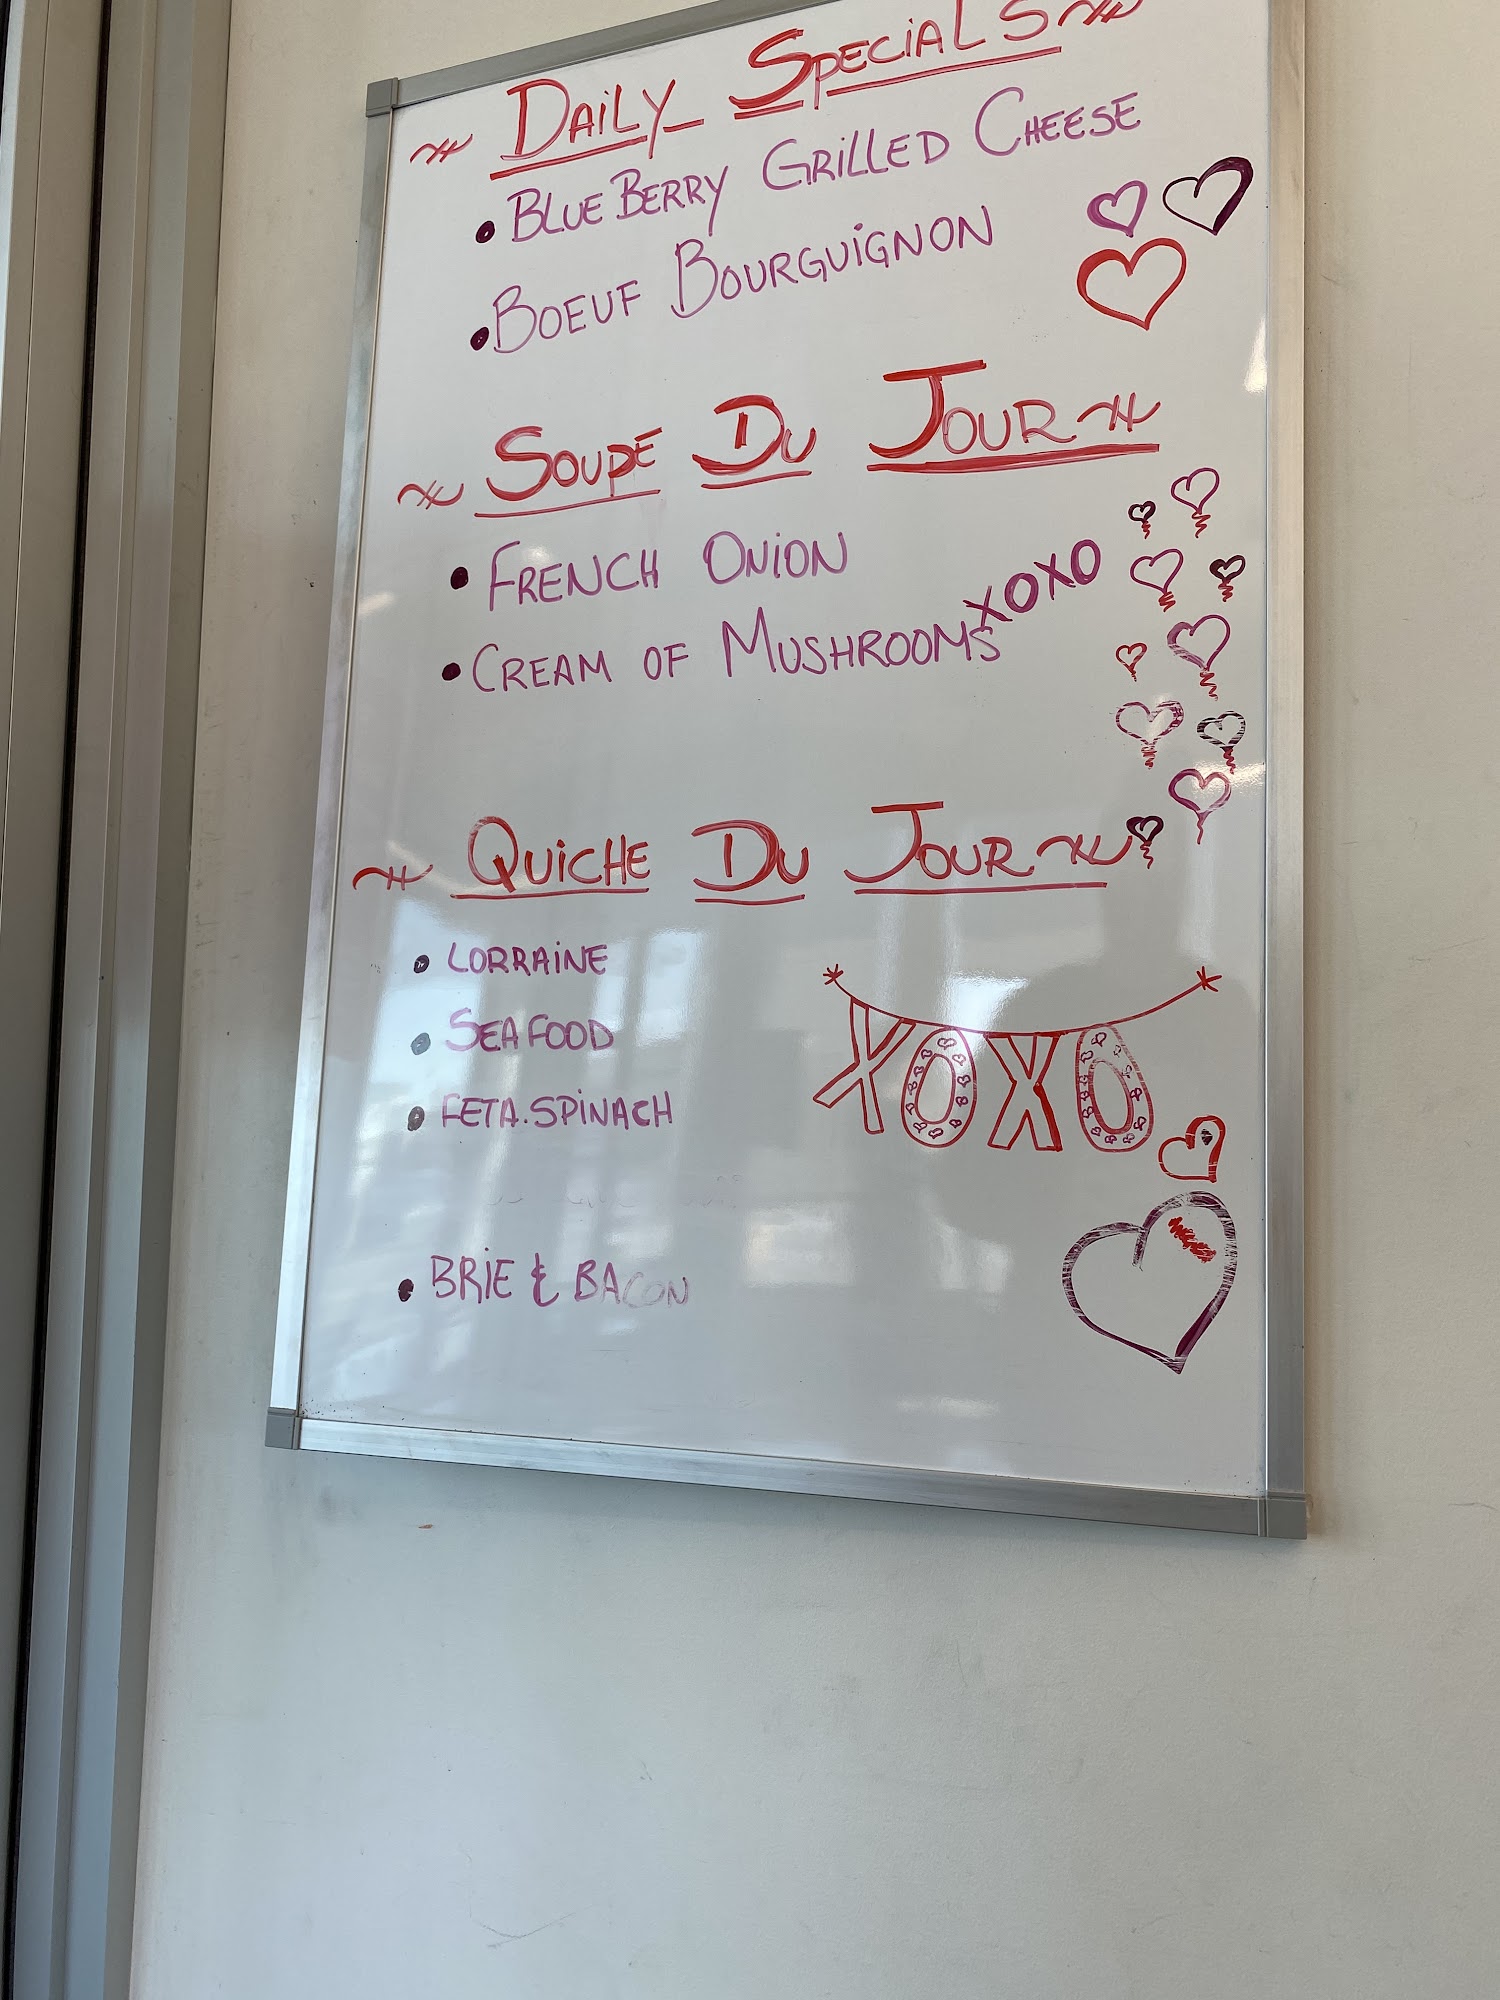 Daily Specials
• Blue Berry Grilled Cheese
• Boeuf Bourguignon
Soupe Du Jour
• French Onion
XOXO
• Cream of Mushrooms
Quiche Du Jour
• Lorraine
• Seafood
• Feta.Spinach
XOXO
• Brie & Bacon